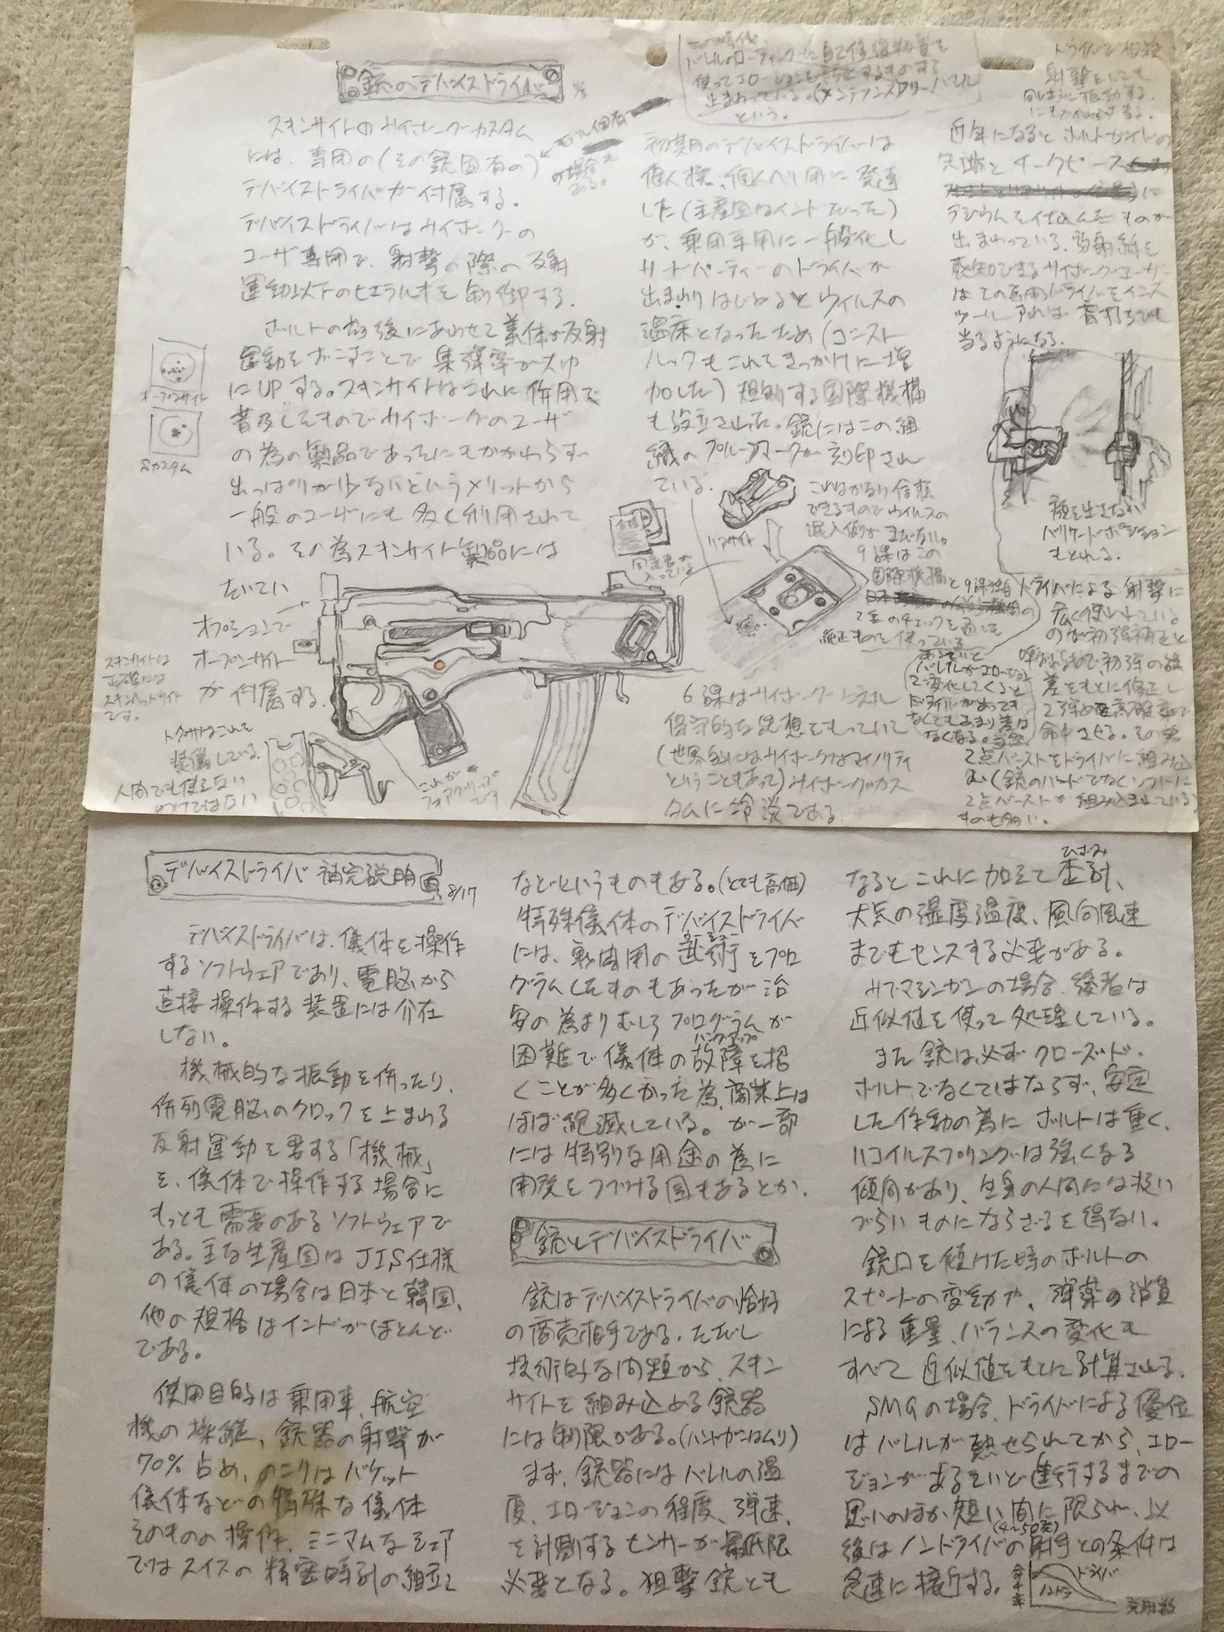 銃のデバイスドライバ
スキンサイトのサイボーグカスタム
には、専用の(その銃固有の)
デバイスドライバが付属する。
デバイスドライバはサイボーグの
ユーザ専用で、射撃の際の反射
運動以下のヒエラルキを制御する。
ボルトの前後にあわせて義体が反射
運動をおこすことで集弾率が大巾
にUPする。スキンサイトはこれに併用で
普及したものでサイボーグのユーザ
の為の製品であったにもかかわらず
出っぱりが少ないというメリットから
一般のユーザにも多く利用されて
いる。その為スキンサイト製品には
たいてい
オプションで
オープンサイト
が付属する。
オープンサイト
スキンサイトは
正確には
です。
装備している。
人間でも使えない
わけではない
これが
初期のデバイスドライバは
個人様、個人ベリ用に発達
した(主産国はインドだった)
が、乗用車用に一般化し
サードパーティーのドライバが
出まわりはじめるとウイルスの
温床となったため(ゴースト
ハックもこれをきっかけに増
加した)規制する国際機構
も設立された。銃にはこの組
織のプルーフマークが刻印され
ている。
これはかなり信頼
できるものでウイルスの
混入例がまだない。
9課はこの
国際機構
6課はサイボーグに対し
保守的な思想をもっていて
(世界的にはサイボーグはマイノリティ
ということもあって)サイボーグカス
タムに冷淡である。
という。
近年になるとボルトやサイトの
先端とチークピース
に
ラジウムを仕込んだものが
出まわっている。放射線を
感知できるサイボーグユーザー
はこの専用ドライバをインス
トールすれば盲打ちでも
当るようになる。
顔を出さない
バリケードポジション
もとれる。
ドライバによる射撃に
広く使われている
のが初弾補正と
呼ばれるもので初弾の誤
差をもとに修正し
2弾めを高確率で
命中させる。その為
2点バーストをドライバに組み込
む(銃のハードでなくソフトに
2点バーストが組み込まれている
ものも多い。
デバイスドライバ 補完説明 8/17
デバイスドライバは、儀体を操作
するソフトウェアであり、電脳から
直接操作する装置には介在
しない。
機械的な振動を伴ったり、
併列電脳のクロックを上まわる
反射運動を要する「機械」
を、儀体で操作する場合に
もっとも需要のあるソフトウェアで
ある。主な生産国はJIS仕様
の儀体の場合は日本と韓国、
他の規格はインドがほとんど
である。
使用目的は乗用車、航空
機の操縦、銃器の射撃が
70%占め、のこりはパケット
儀体などの特殊な儀体
そのものの操作、ミニマムなシェア
ではスイスの精密時計の組立て
などというものもある。(とても高価)
特殊儀体のデバイスドライバ
には、戦闘用の武術をプロ
グラムしたものもあったが治
安の為よりむしろプログラムが
困難で儀体の故障を招
くことが多くかった為、商業上は
ほぼ絶滅している。が一部
には特別な用途の為に
開発をつづける国もあるとか。
銃とデバイスドライバ
銃はデバイスドライバの恰好
の商売相手である。ただし
技術的な問題から、スキン
サイトを組み込める銃器
には制限がある。(ハンドガンはムリ)
まず、銃器にはバレルの温
度、エロージョンの程度、弾速、
を計測するセンサーが最低限
必要となる。狙撃銃とも
なるとこれに加えて歪計、
大気の湿度温度、風向風速
までもセンスする必要がある。
サブマシンガンの場合、後者は
近似値を使って処理している。
また銃は必ずクローズド・
ボルトでなくてはならず、安定
した作動の為にボルトは重く、
リコイルスプリングは強くなる
傾向があり、生身の人間には扱い
づらいものにならざるを得ない。
銃口を傾けた時のボルトの
スピードの変動や、弾薬の消費
による重量、バランスの変化も
すべて近似値をもとに計算される。
SMGの場合、ドライバによる優位
はバレルが熱せられてから、エロー
ジョンがあるていど進行するまでの
思いのほか短い間に限られ、以
(4~50発)
後はノンドライバの射手との条件は
急速に接近する。
ドライバ
ノンドラ
発射数